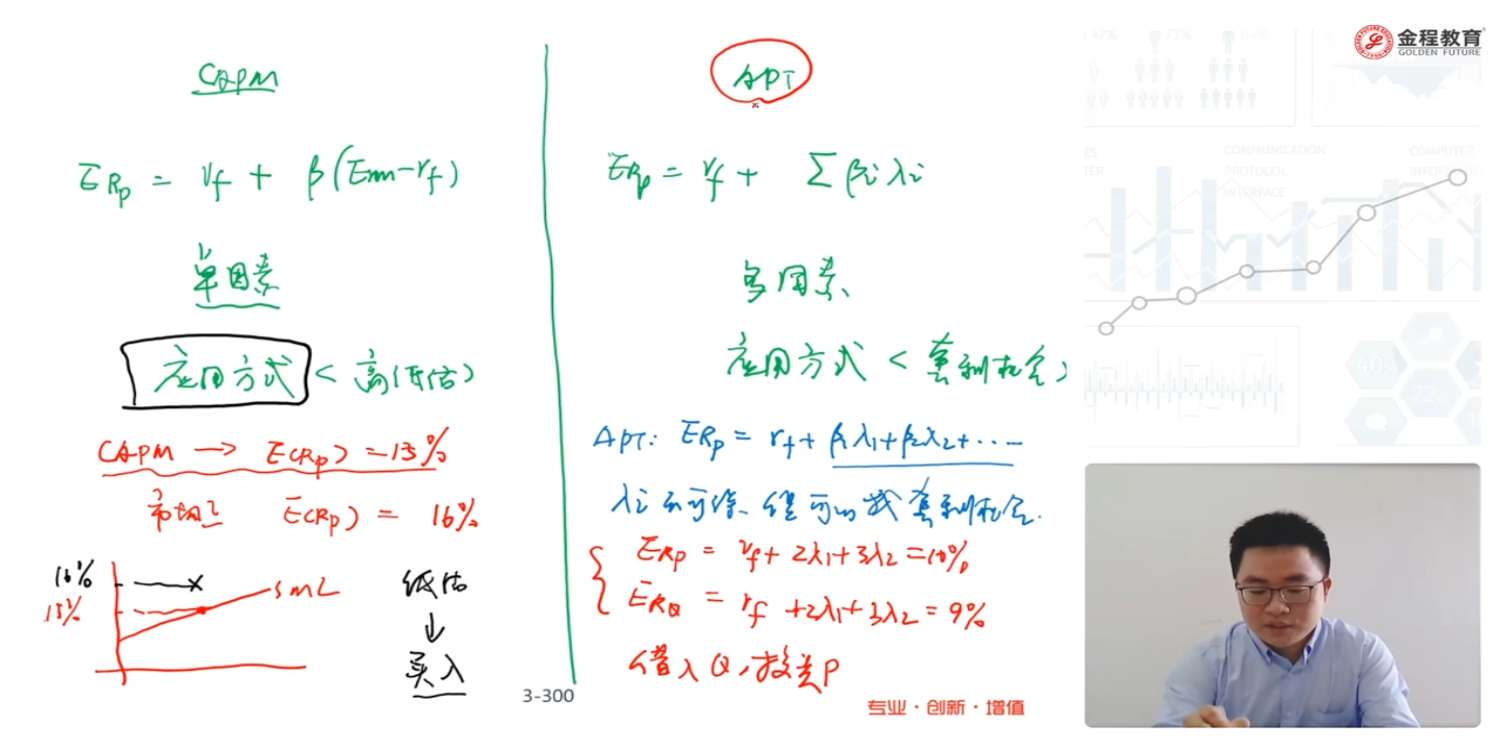 CAPM
E Rp = rf + β(Em-rf)
单因素
应用方式 < 高低估>
CAPM → E(Rp) = 15%
市场上 E(Rp) = 16%
16%
15%
SML
低估
↓
买入
APT
E Rp = rf + Σ βi λi
多因素
应用方式 < 套利机会>
APT: E Rp = rf + β1 λ1 + β2 λ2 + ……
λi 不可 但可以找套利机会.
E Rp = rf + 2λ1 + 3λ2 = 10%
E RQ = rf + 2λ1 + 3λ2 = 9%
借入 Q, 投资 P
3-300
专业·创新·增值
金程教育
GOLDEN FUTURE
COMMUNICATION
PROTOCOL
INTERFACE